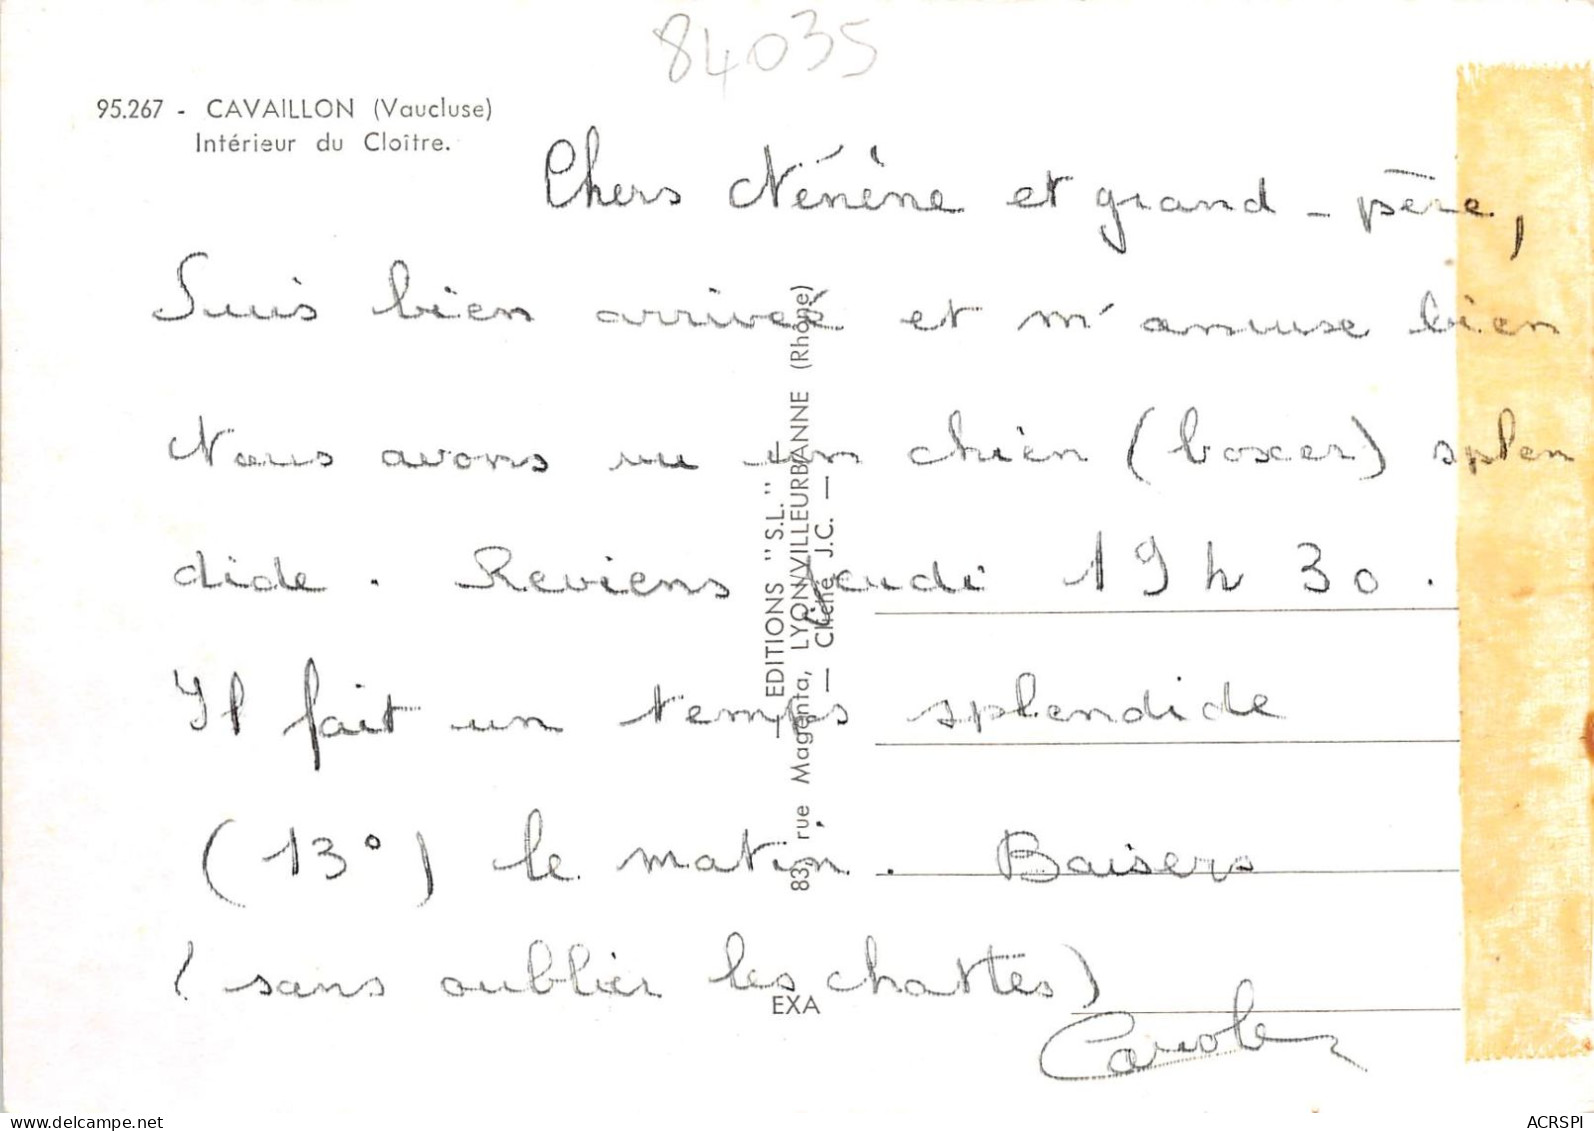 84035
95.267 - CAVAILLON (Vaucluse)
Intérieur du Cloître.
Chers Nénène et grand-père,
Suis bien arrivée et m'amuse bien
Nous avons vu un chien (boxer) splen
dide. Reviens jeudi 19h30.
Il fait un temps splendide
(13°) le matin. Baisers
(sans oublier les chattes)
Carole
EDITIONS "S.L."
83, rue Magenta, LYON/VILLEURBANNE (Rhône)
— Cliché J.C. —
EXA
delcampe.net
ACRSPI